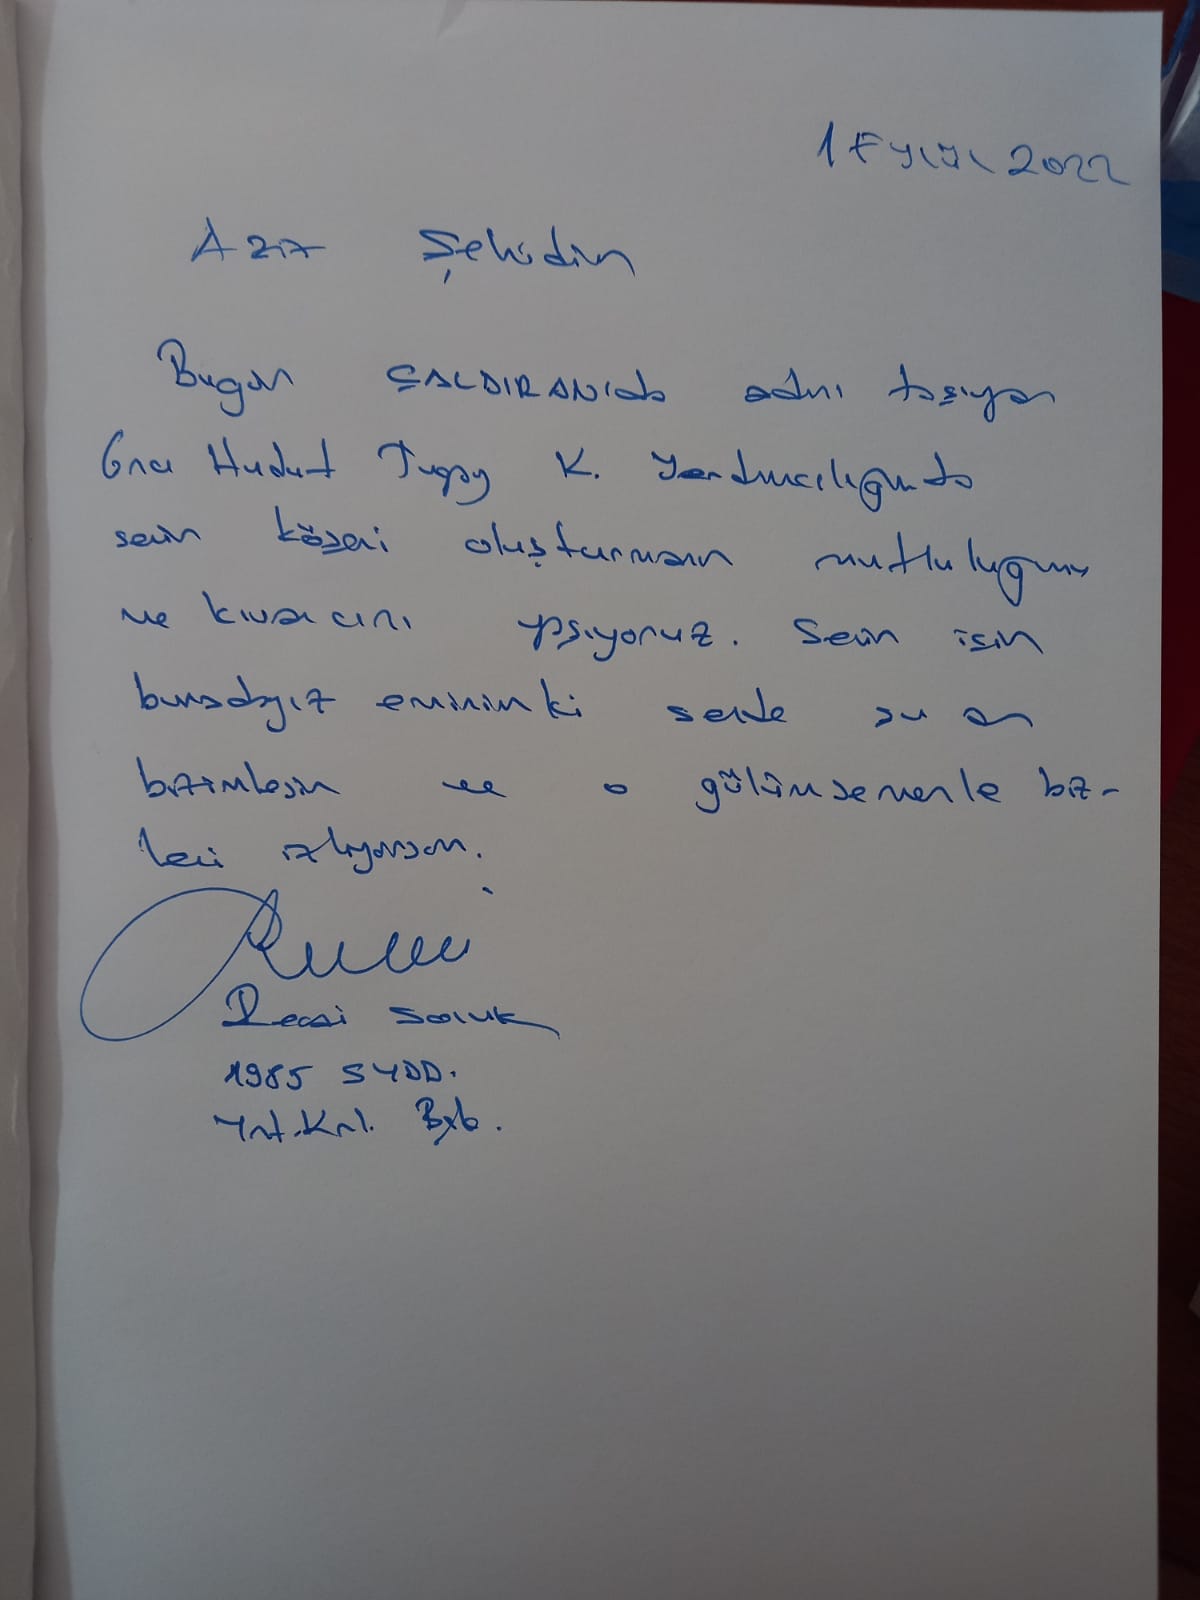 1 EYLÜL 2022
Aziz Şehidim
Bugün ÇALDIRAN'da adını taşıyan
6ncı Hudut Tugay K. Yardımcılığında
senin köşeni oluşturmanın mutluluğunu
ve kıvancını yaşıyoruz. Senin için
buradayız eminimki sende şu an
bizimlesin ve o gülümsemenle biz-
leri izliyorsun.
Recai Soluk
1985
Knl. Bşb.